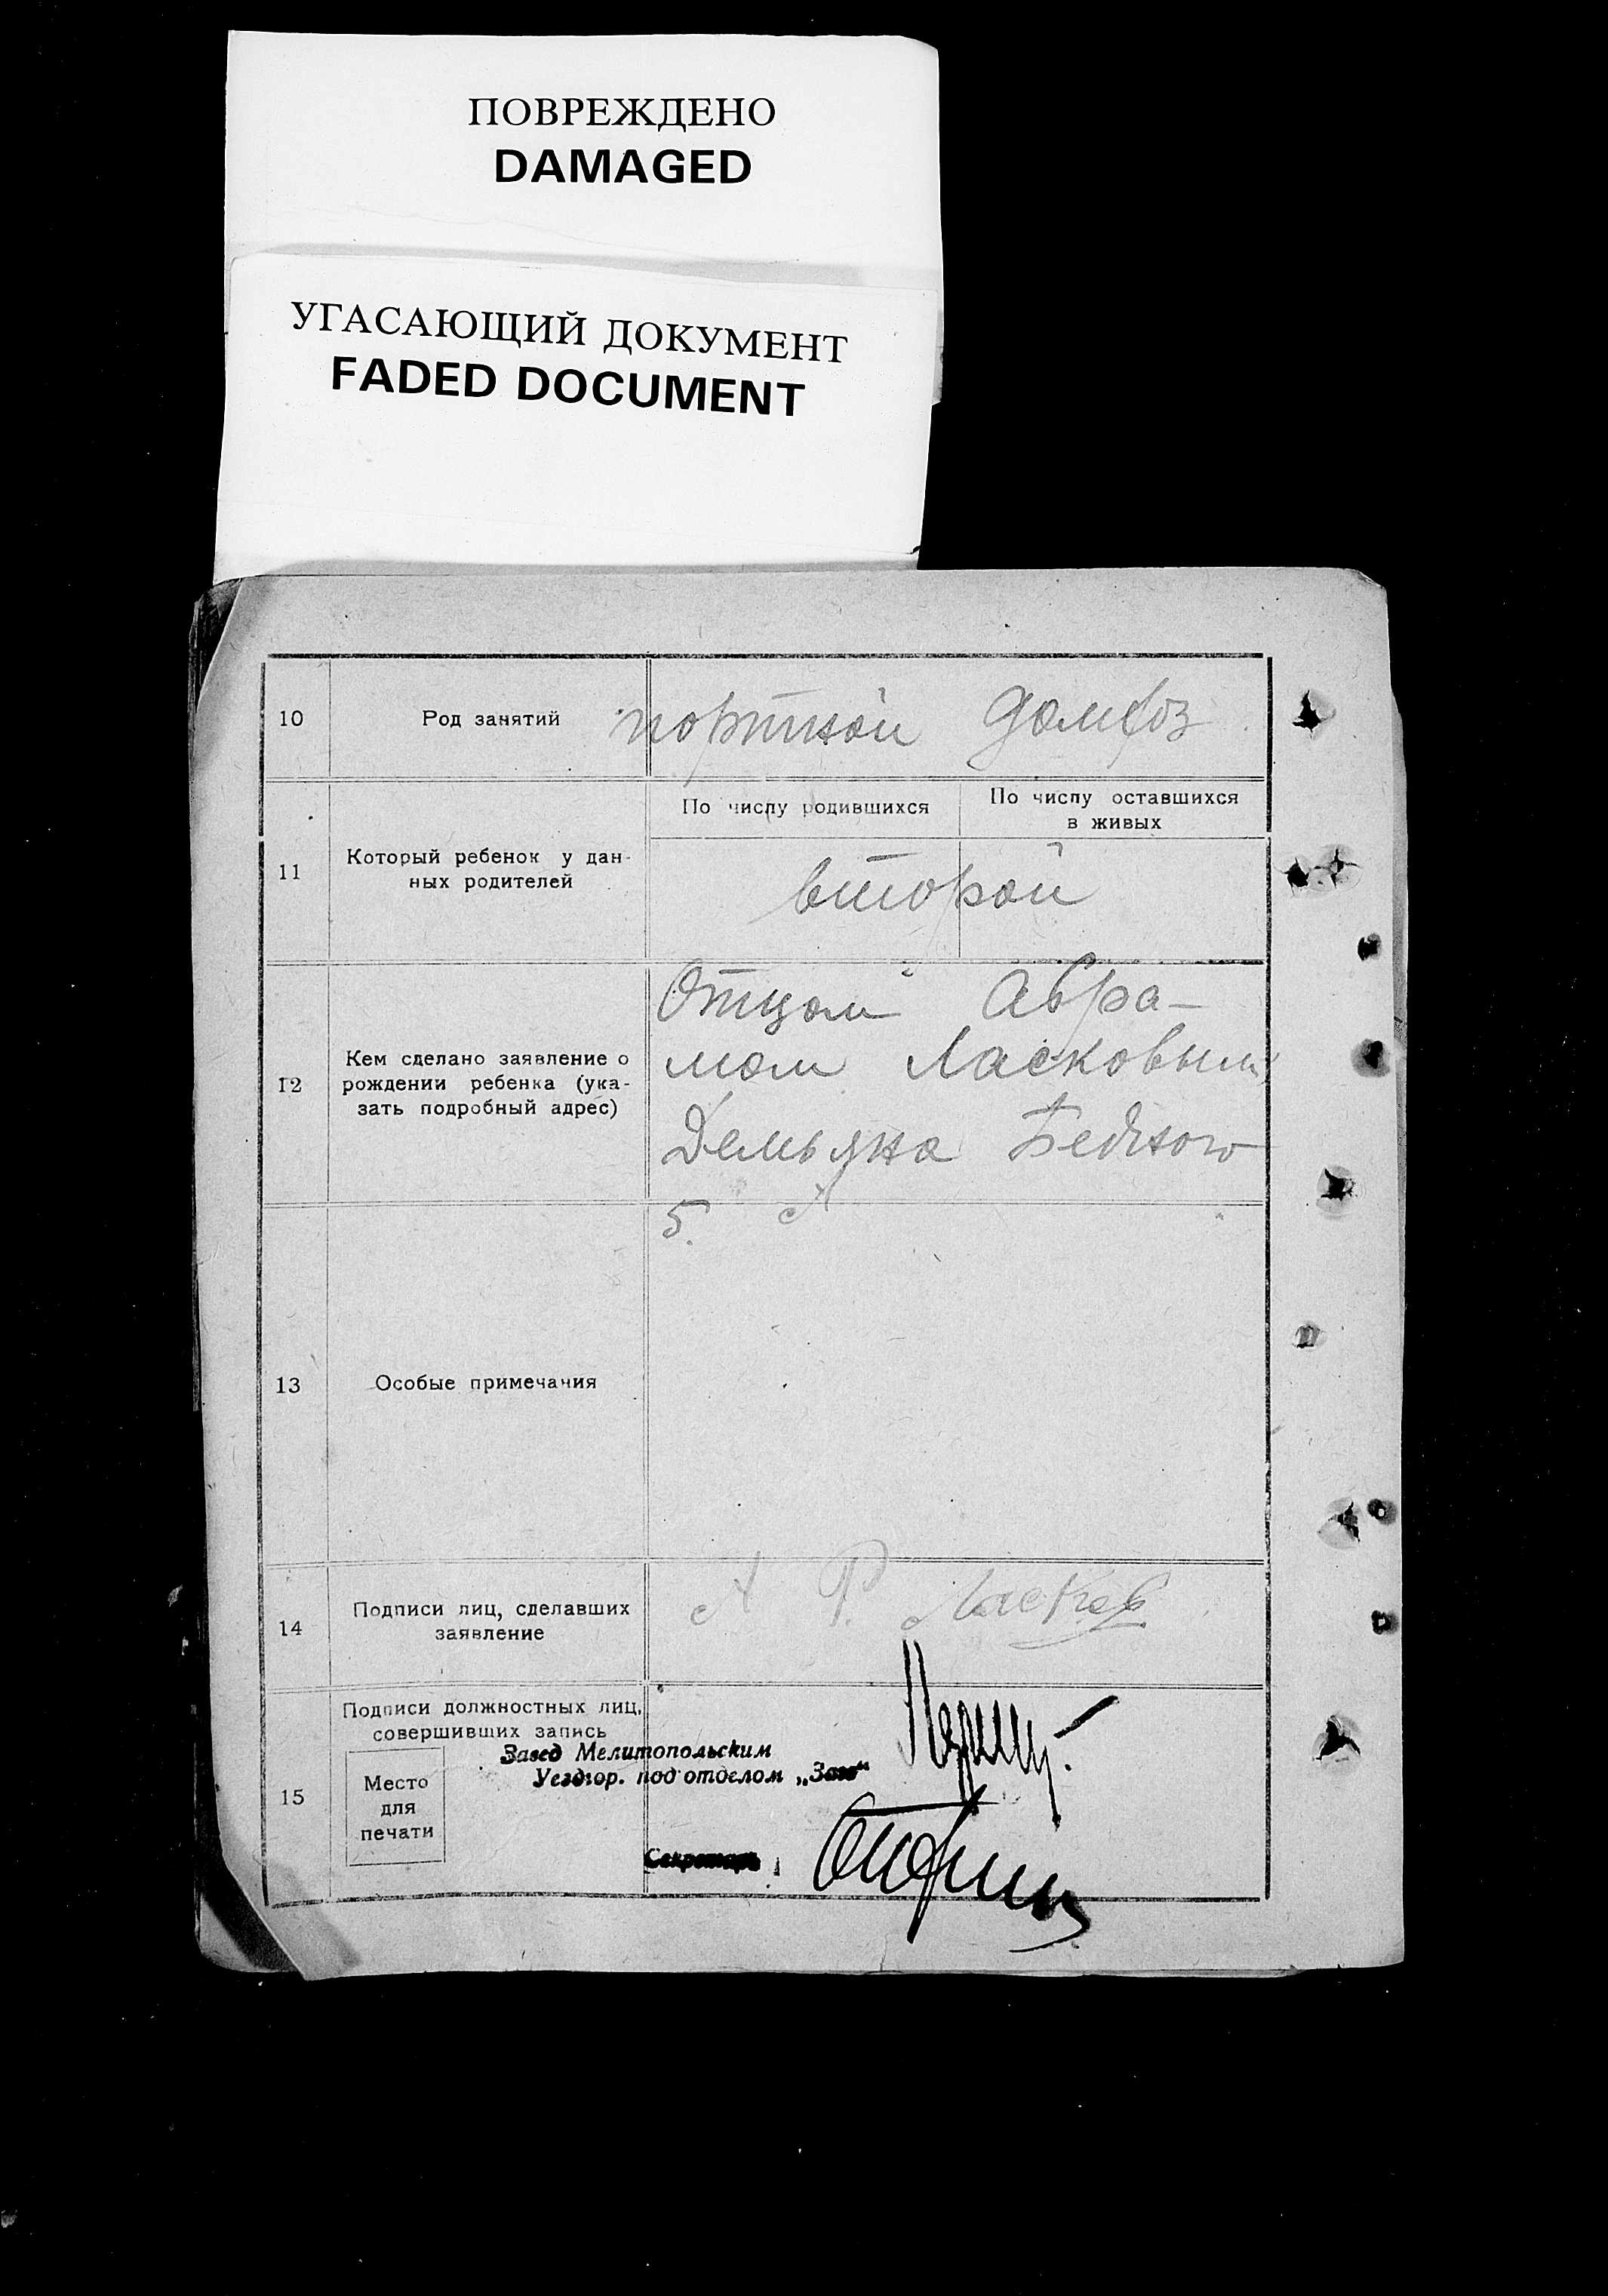 ПОВРЕЖДЕНО
DAMAGED
УГАСАЮЩИЙ ДОКУМЕНТ
FADED DOCUMENT
10
Род занятий
портной домхоз
11
Который ребенок у дан-
ных родителей
По числу родившихся
По числу оставшихся
в живых
второй
12
Кем сделано заявление о
рождении ребенка (ука-
зать подробный адрес)
Отцом Абра-
мом Ласковым
Демьяна Бедного
5.
13
Особые примечания
14
Подписи лиц, сделавших
заявление
А Р. Ласков
15
Подписи должностных лиц,
совершивших запись
Место
для
печати
Завед Мелитопольским
Уездгор. подотделом „Загс“
Секретарь